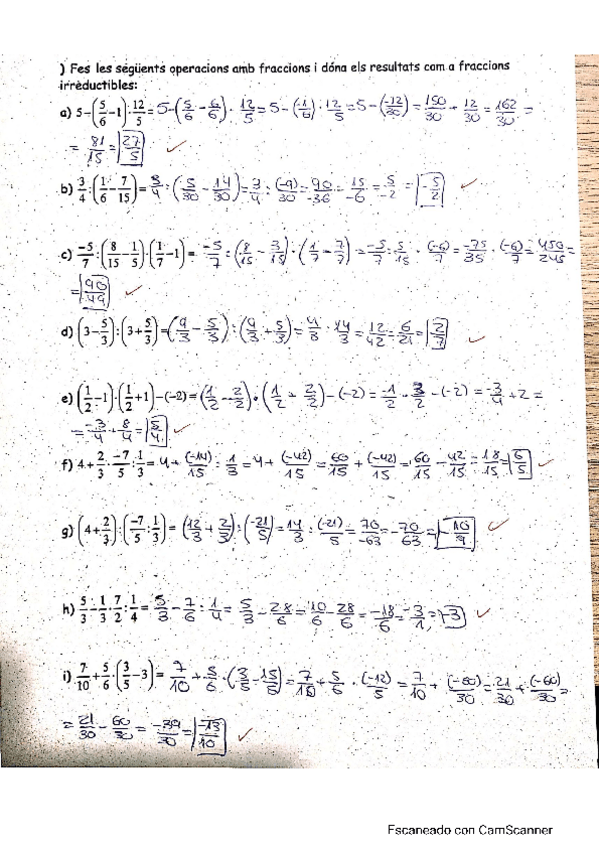 ) Fes les següents operacions amb fraccions i dóna els resultats com a fraccions
irrèductibles:
a) 5-(5/6-1)·12/5 = 5-(5/6-6/6)·12/5 = 5-(1/6)·12/5 = 5-(-12/30) = 150/30 + 12/30 = 162/30 =
= 81/15 = 27/5
b) 3/4:(1/6-7/15) = 3/4:(5/30-14/30) = 3/4:(-9)/30 = 90/-36 = 15/-6 = 5/-2 = -5/2
c) -5/7:(8/15-1/5)·(1/7-1) = -5/7:(8/15-3/15)·(1/7-7/7) = -5/7:5/15·(-6)/7 = -75/35·(-6)/7 = 450/245 =
= 90/49
d) (3-5/3):(3+5/3) = (9/3-5/3):(9/3+5/3) = 4/3:14/3 = 12/42 = 6/21 = 2/7
e) (1/2-1)·(1/2+1)-(-2) = (1/2-2/2)·(1/2+2/2)-(-2) = -1/2·3/2-(-2) = -3/4+2 =
= -3/4+8/4 = 5/4
f) 4+2/3·-7/5:1/3 = 4+(-14)/15:1/3 = 4+(-42)/15 = 60/15+(-42)/15 = 60/15-42/15 = 18/15 = 6/5
g) (4+2/3):(-7/5:1/3) = (12/3+2/3):(-21/5) = 14/3:(-21)/5 = 70/-63 = -70/63 = -10/9
h) 5/3-1/3·7/2:1/4 = 5/3-7/6:1/4 = 5/3-28/6 = 10/6-28/6 = -18/6 = -3/1 = -3
i) 7/10+5/6·(3/5-3) = 7/10+5/6·(3/5-15/5) = 7/10+5/6·(-12/5) = 7/10+(-60)/30 = 21/30+(-60)/30 =
= 21/30-60/30 = -39/30 = -13/10
Escaneado con CamScanner